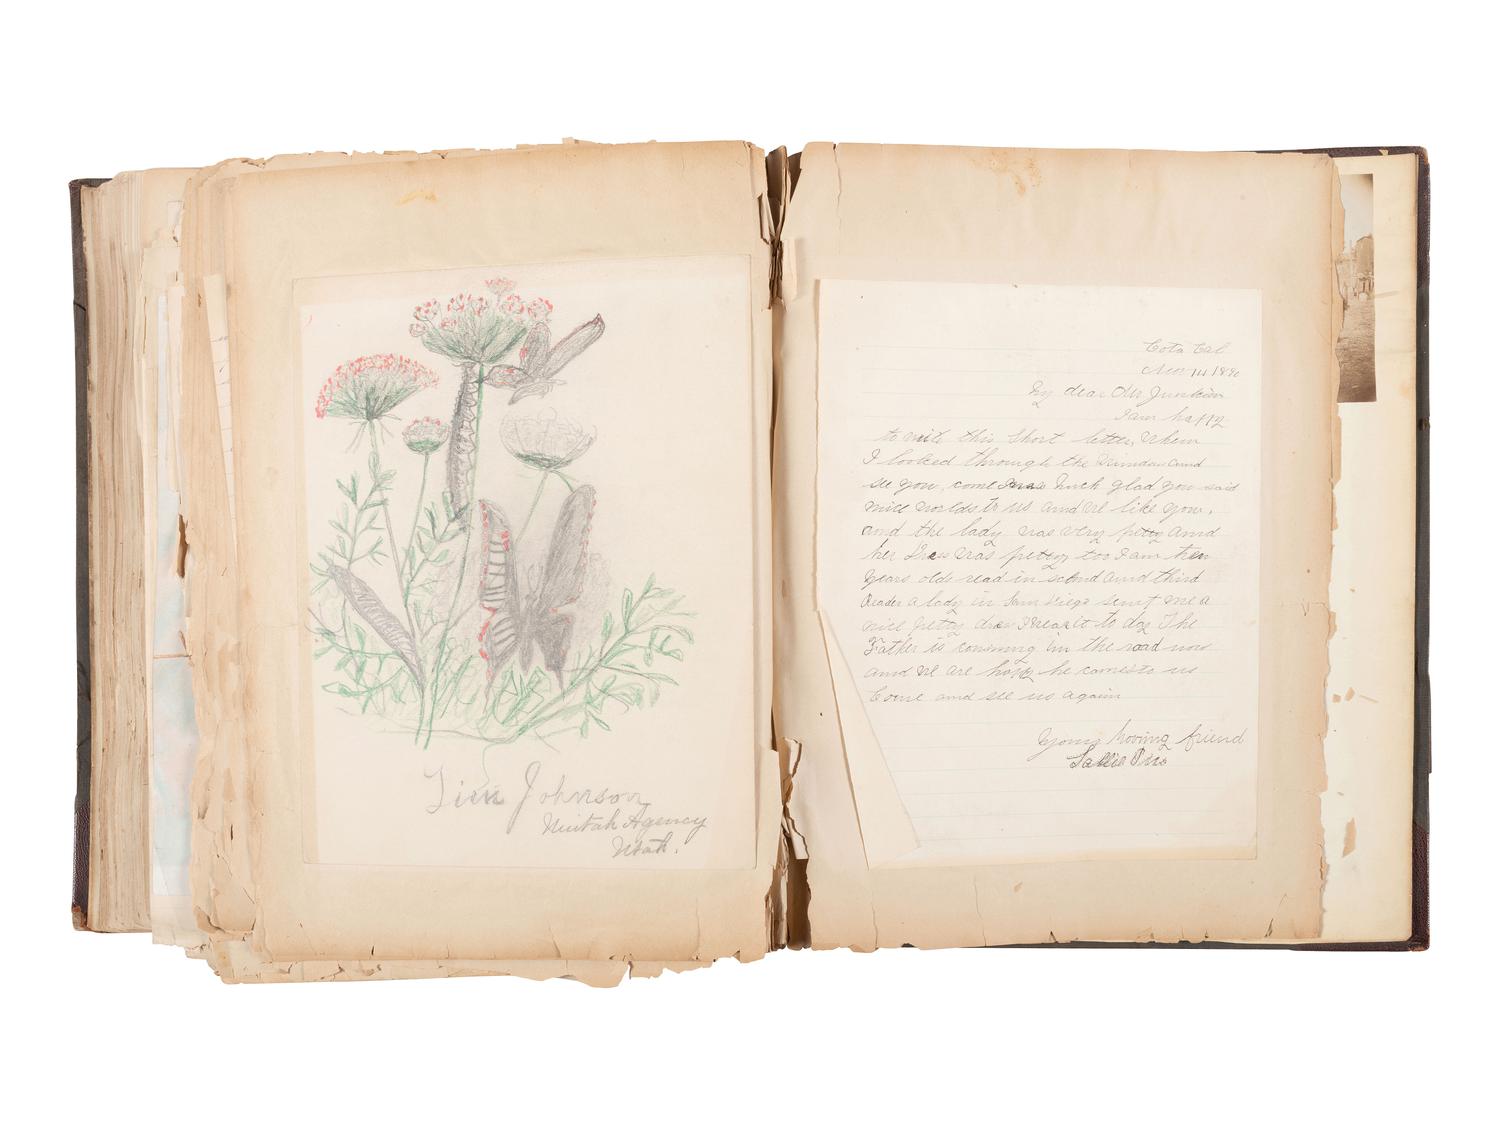 Johnson
Uintah Agency
Utah.
Cota Cal
Nov 14 1890
My dear Mr Junkin
I am happy
to write this short letter, When
I looked through the window and
see you, come was much glad you said
nice worlds to us and we like you,
and the lady was very pretty and
her Dress was pretty too I am ten
years olds read in second and third
Reader a lady in San Diego sent me a
nice pretty dress I wear it to day The
Father is comming in the road now
and we are happy he comes to us
Come and see us again
Your loving friend
Sallie